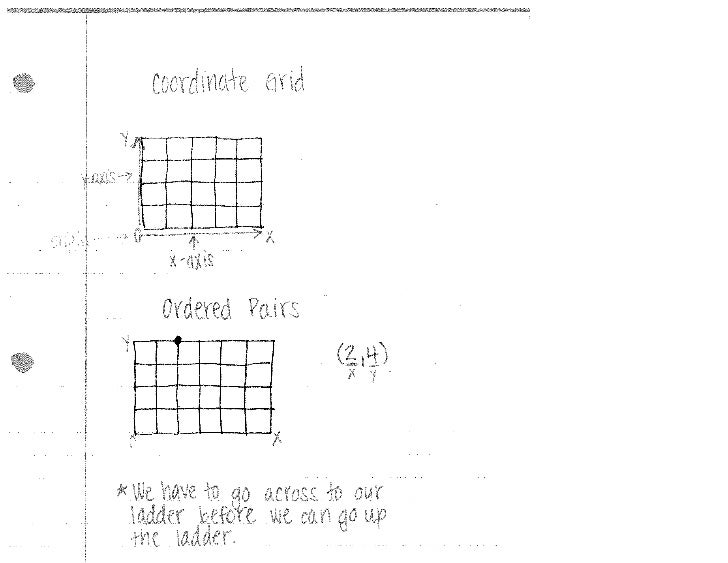 Coordinate Grid
Y
y-axis→
0
X
x-axis
Ordered Pairs
Y
(2,4)
x y
X
* We have to go across to our
ladder before we can go up
the ladder.